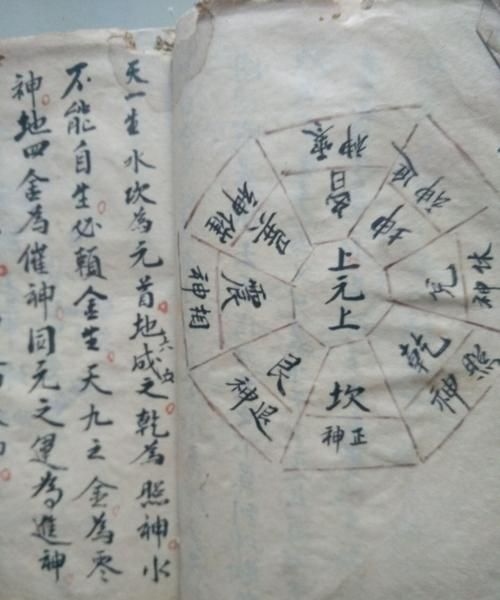 天一生水坎為元首地六成之乾為照神水
不能自生必賴金生天九之金為零
神地四金為催神同元之運為進神
上元上
坎
正神
乾
照神
兌
神
坤
神
神零
巽
神催
震
神相
艮
神退